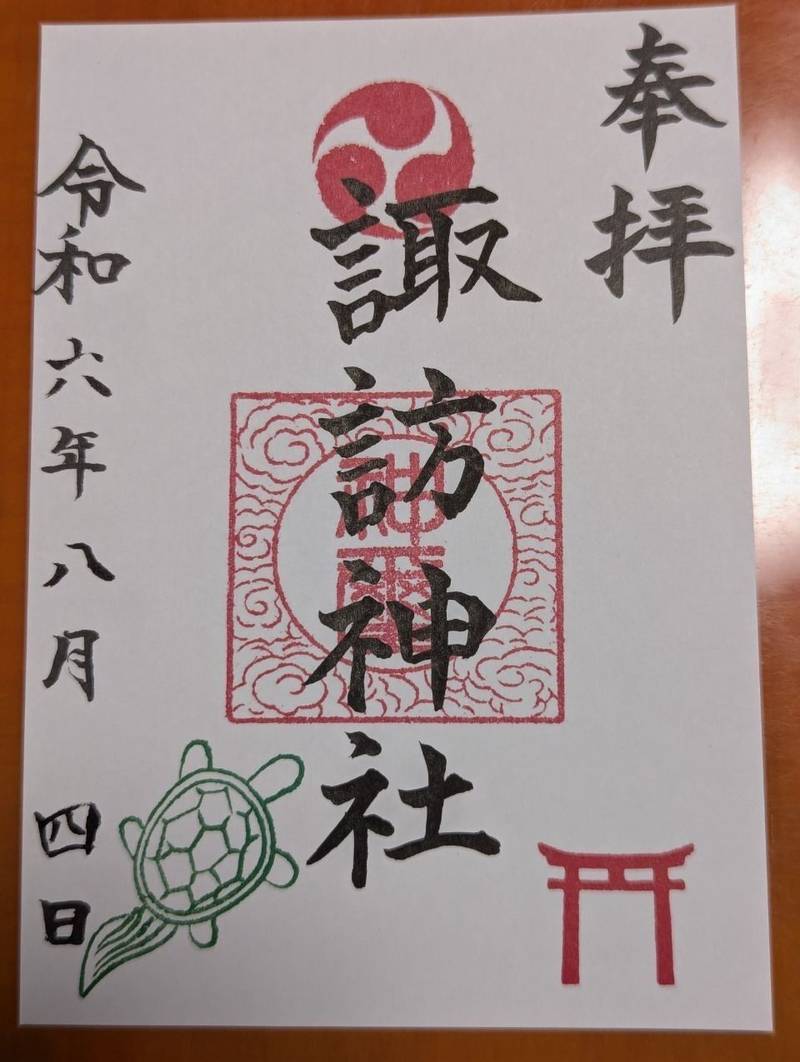 奉拝
諏訪神社
神璽
令和六年八月四日